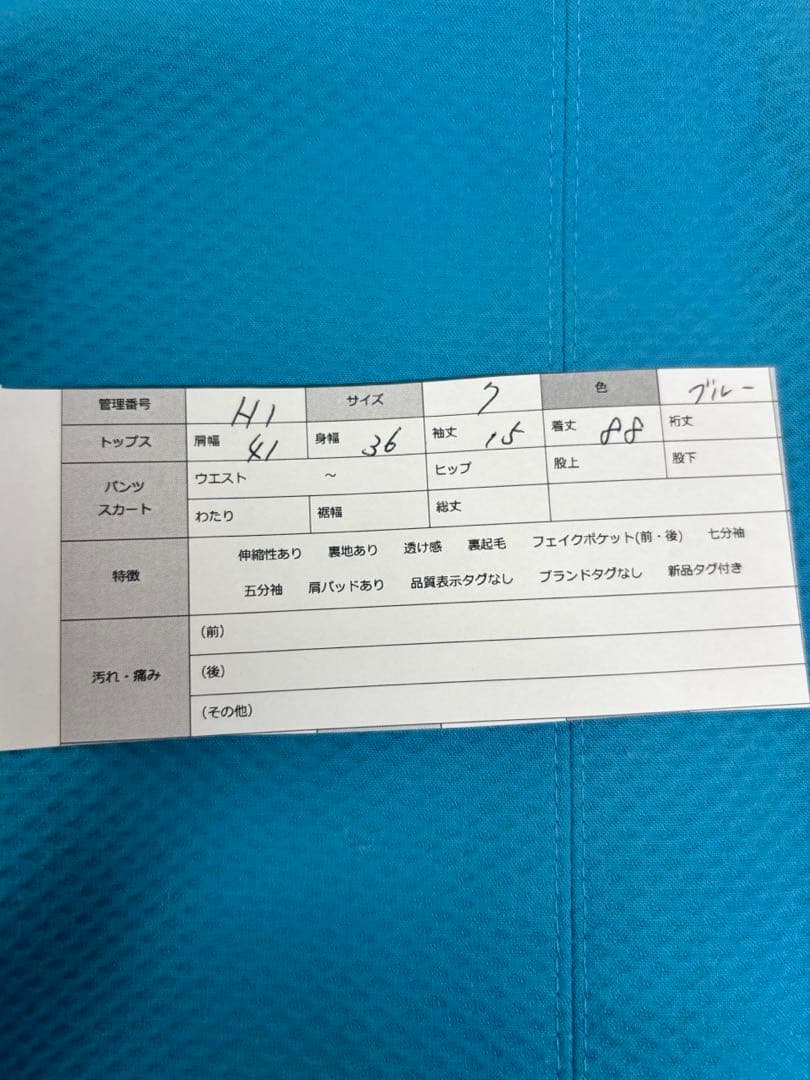 管理番号 H1 サイズ 7 色 ブルー
トップス 肩幅 41 身幅 36 袖丈 15 着丈 88 裄丈
パンツ スカート ウエスト ～ ヒップ 股上 股下
わたり 裾幅 総丈
特徴 伸縮性あり 裏地あり 透け感 裏起毛 フェイクポケット(前・後) 七分袖
五分袖 肩パッドあり 品質表示タグなし ブランドタグなし 新品タグ付き
汚れ・痛み (前)
(後)
(その他)